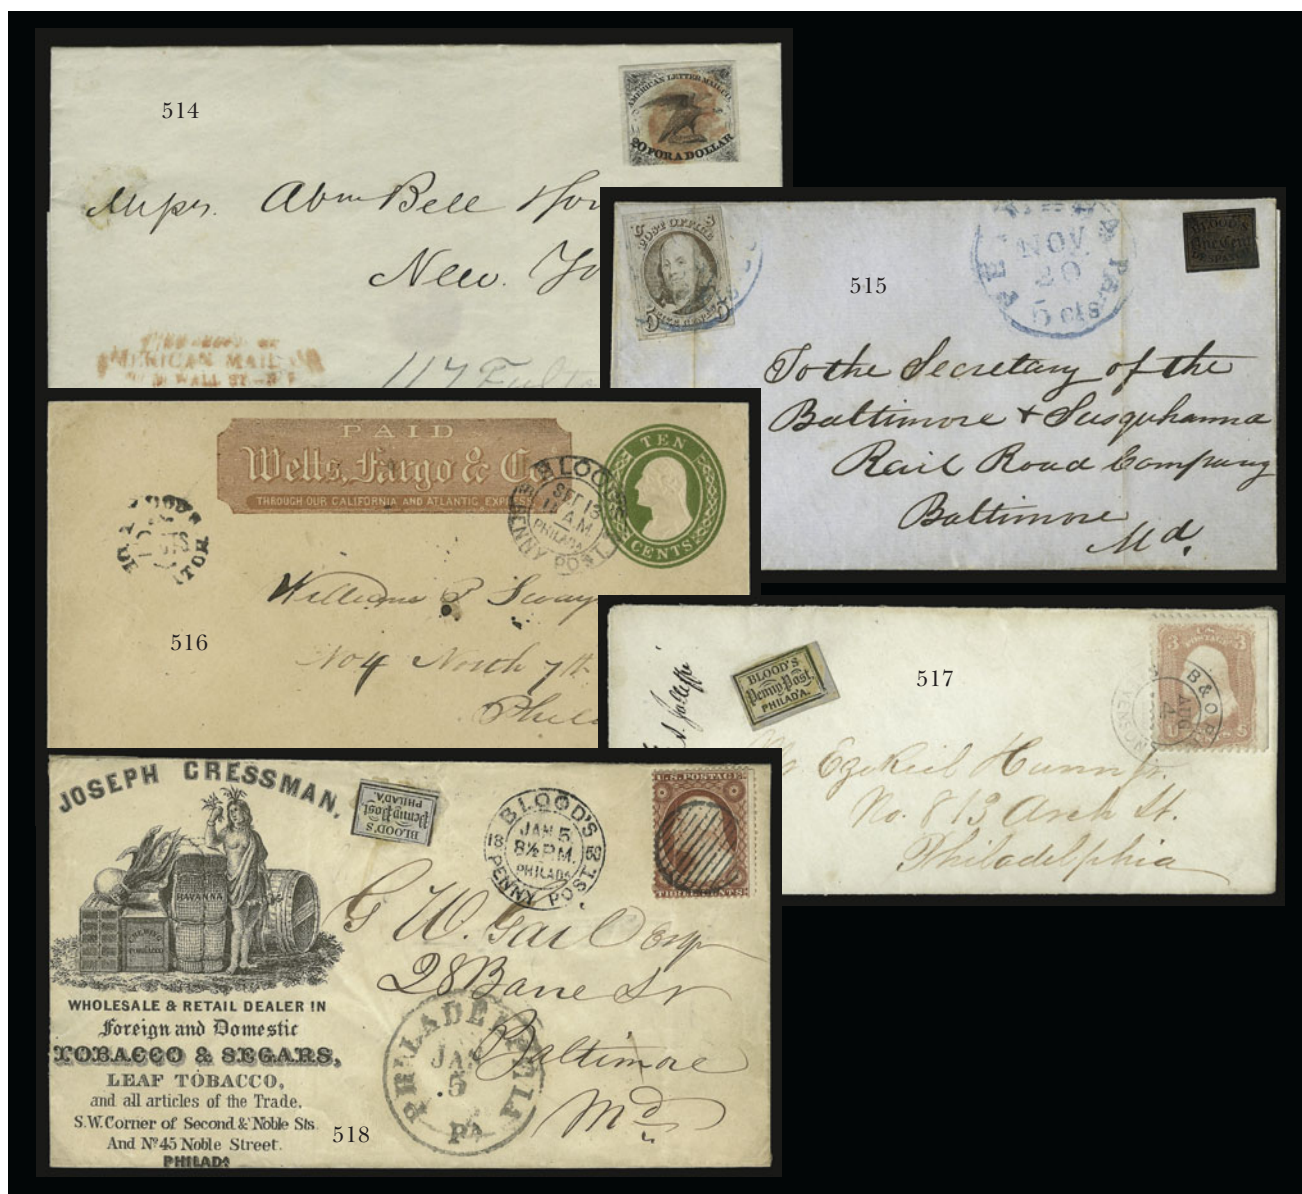 514
AMERICAN LETTER MAIL CO.
20 FOR A DOLLAR
Abm Bell
New. Yo
AMERICAN MAIL
WALL ST
117 Fulto
515
U S
POST OFFICE
5 5
NOV
20
5 cts
BLOOD'S
One Cent
DESPATCH
To the Secretary of the
Baltimore & Susquhanna
Rail Road Company
Baltimore
Md.
PAID
Wells, Fargo & Co
THROUGH OUR CALIFORNIA AND ATLANTIC EXPRESS
TEN
CENTS
BLOOD'S
SET 13
11 A.M.
PHILADA
PENNY POST
516
William P Sway
No 4 North 7th
Phila
517
BLOOD'S
Penny Post.
PHILAD'A.
U.S. POSTAGE
3 3
B & O R
AUG
4
Ezekiel Hunn Jr.
No. 813 Arch St.
Philadelphia
JOSEPH CRESSMAN,
HAVANNA
TOBACCO
WHOLESALE & RETAIL DEALER IN
Foreign and Domestic
TOBACCO & SEGARS,
LEAF TOBACCO,
and all articles of the Trade.
S.W. Corner of Second & Noble Sts.
And No 45 Noble Street.
PHILADA
518
BLOOD'S
Penny Post.
PHILAD'A.
BLOOD'S
JAN 5
8½ P.M.
PHILADA
PENNY POST.
U.S. POSTAGE
THREE CENTS
G W. Gail Esqr
28 Bane St
Baltimore
Md
PHILADELPHIA
JAN
5
PA